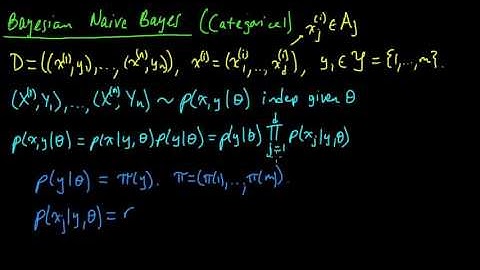 Bayesian Naive Bayes (Categorical) x_j^{(i)} ∈ A_j
D = ((x^{(1)}, y_1), ..., (x^{(n)}, y_n)), x^{(i)} = (x_1^{(i)}, ..., x_d^{(i)}), y_i ∈ 𝒴 = {1, ..., m}.
(X^{(1)}, Y_1), ..., (X^{(n)}, Y_n) ~ p(x, y | θ) indep given θ
p(x, y | θ) = p(x | y, θ) p(y | θ) = p(y | θ) ∏_{j=1}^{d} p(x_j | y, θ)
p(y | θ) = π(y). π = (π(1), ..., π(m)).
p(x_j | y, θ) = r